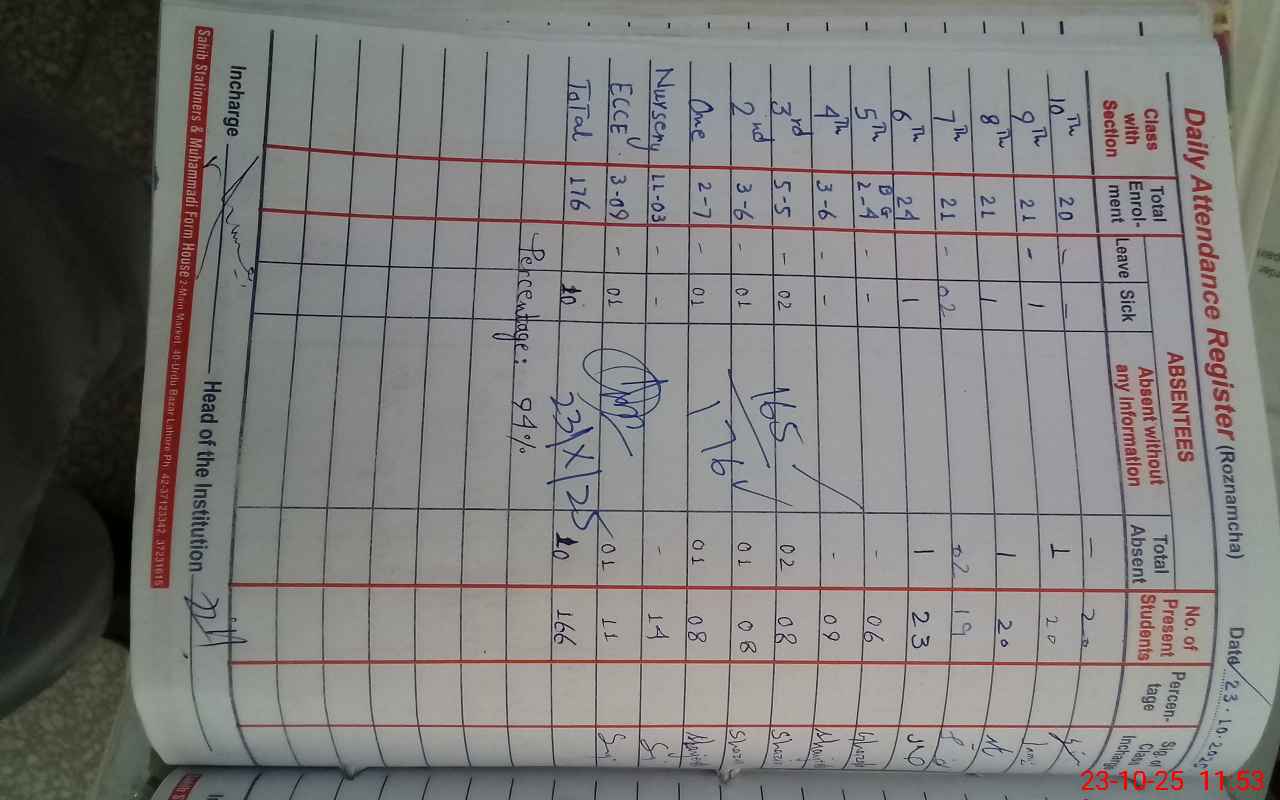 Daily Attendance Register (Roznamcha) Date 23.10.20
Class with Section Total Enrol-ment ABSENTEES Total Absent No. of Present Students Percen-tage Sig. of Class Incharge
Leave Sick Absent without any Information
10Th 20 - - - 20
9Th 21 - 1 1 20
8Th 21 1 1 20
7Th 21 - 02 02 19
6Th 24 1 1 23
B G
5Th 2-4 - - - 06
4Th 3-6 - - - 09
3rd 5-5 - 02 02 08
165
2nd 3-6 - 01 01 08
176
One 2-7 - 01 01 08
Nursery 11-03 - - - 14
ECCE. 3-09 - 01 01 11
23/X/25
ToTal 176 10 10 166
Percentage: 94%
Incharge Head of the Institution
Sahib Stationers & Muhammadi Form House 2-Main Market, 40-Urdu Bazar Lahore Ph: 42-37123342, 37231615
23-10-25 11:53